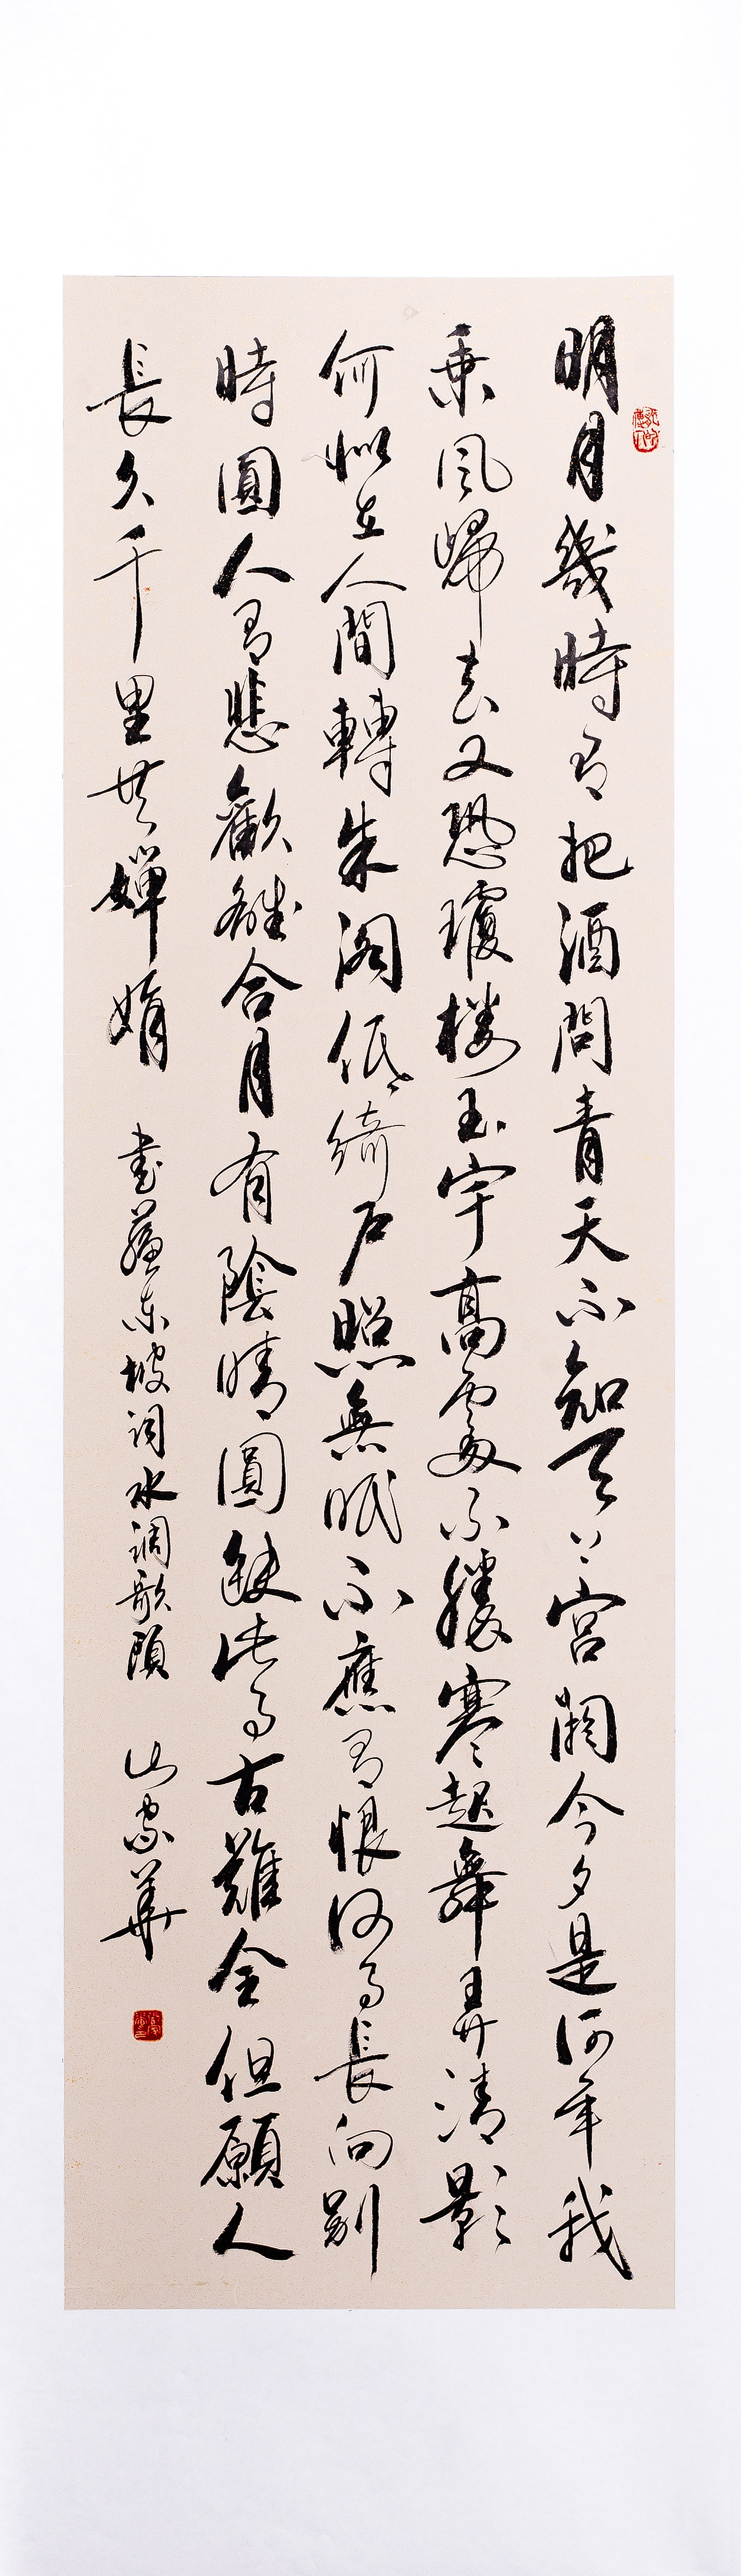 明月幾時有把酒問青天不知天上宮闕今夕是何年我
乘風歸去又恐瓊樓玉宇高處不勝寒起舞弄清影
何似在人間轉朱閣低綺戶照無眠不應有恨何事長向別
時圓人有悲歡離合月有陰晴圓缺此事古難全但願人
長久千里共嬋娟 書蘇東坡詞水調歌頭